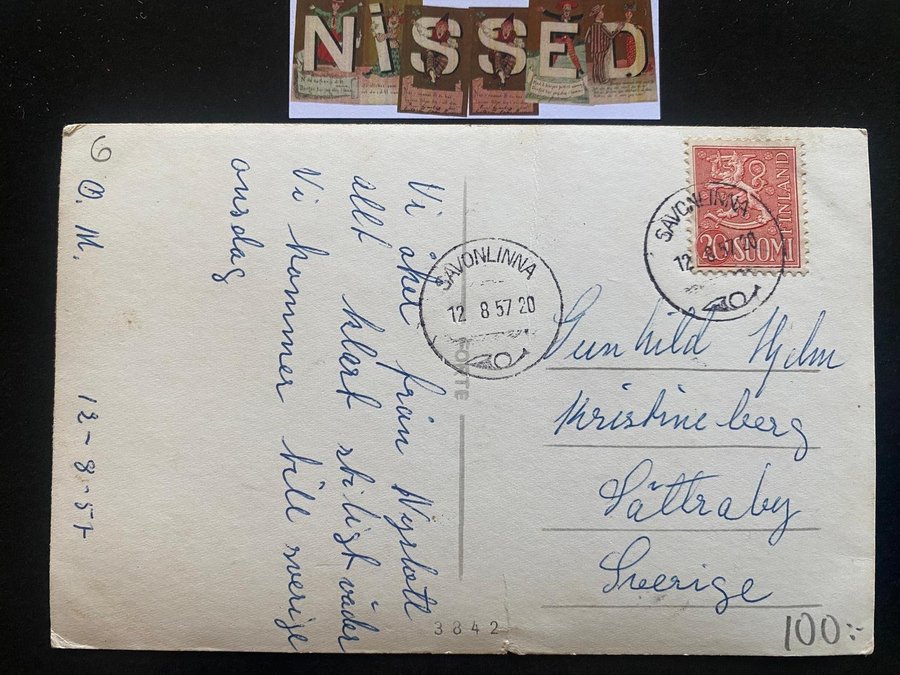 NISSED
Vi åker från Nyslott
allt klart stiligt väder
Vi kommer till sverige
onsdag
O. M.
12-8-57
SAVONLINNA
12 8 57 20
KORTE
3842
FINLAND
30 SUOMI
SAVONLINNA
12 8 57 20
Gunhild Hjelm
Kristineberg
Sättraby
Sverige
100:-